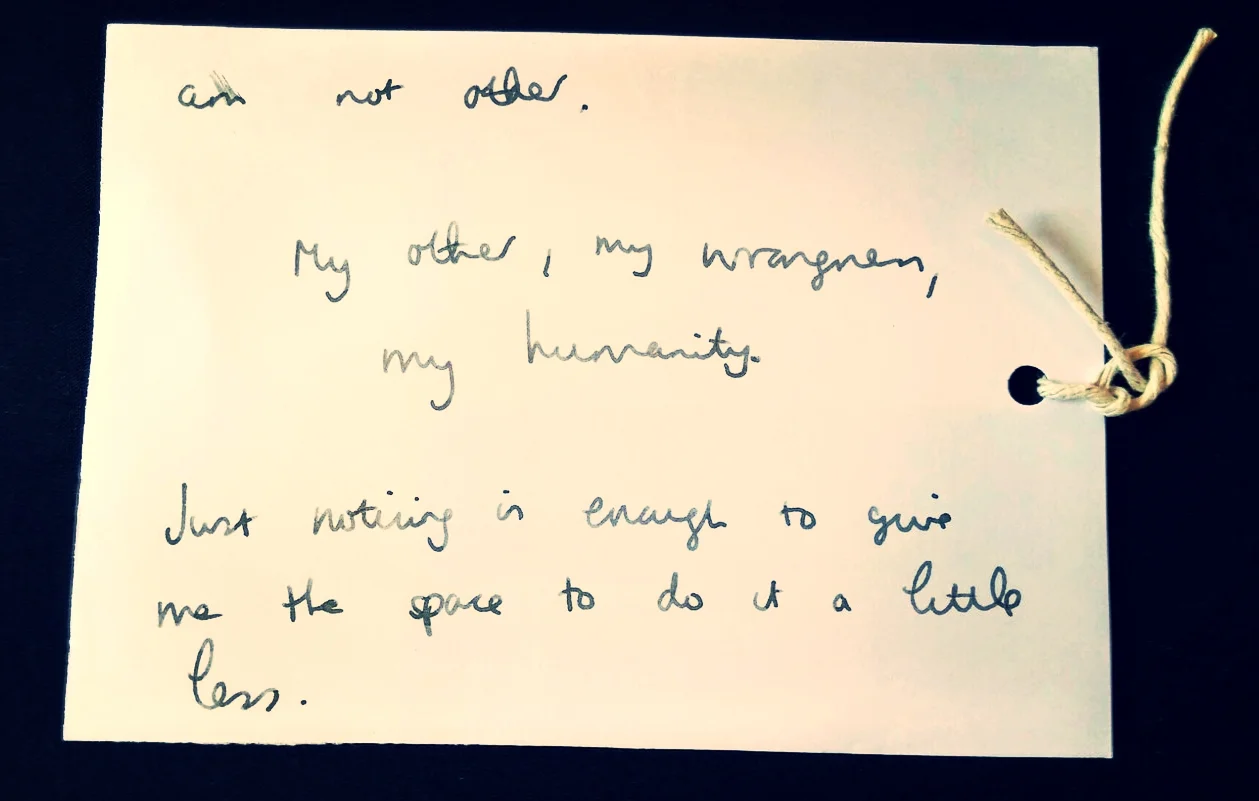 am not other.
My other, my wrongness,
my humanity.
Just noticing is enough to give
me the space to do it a little
less.